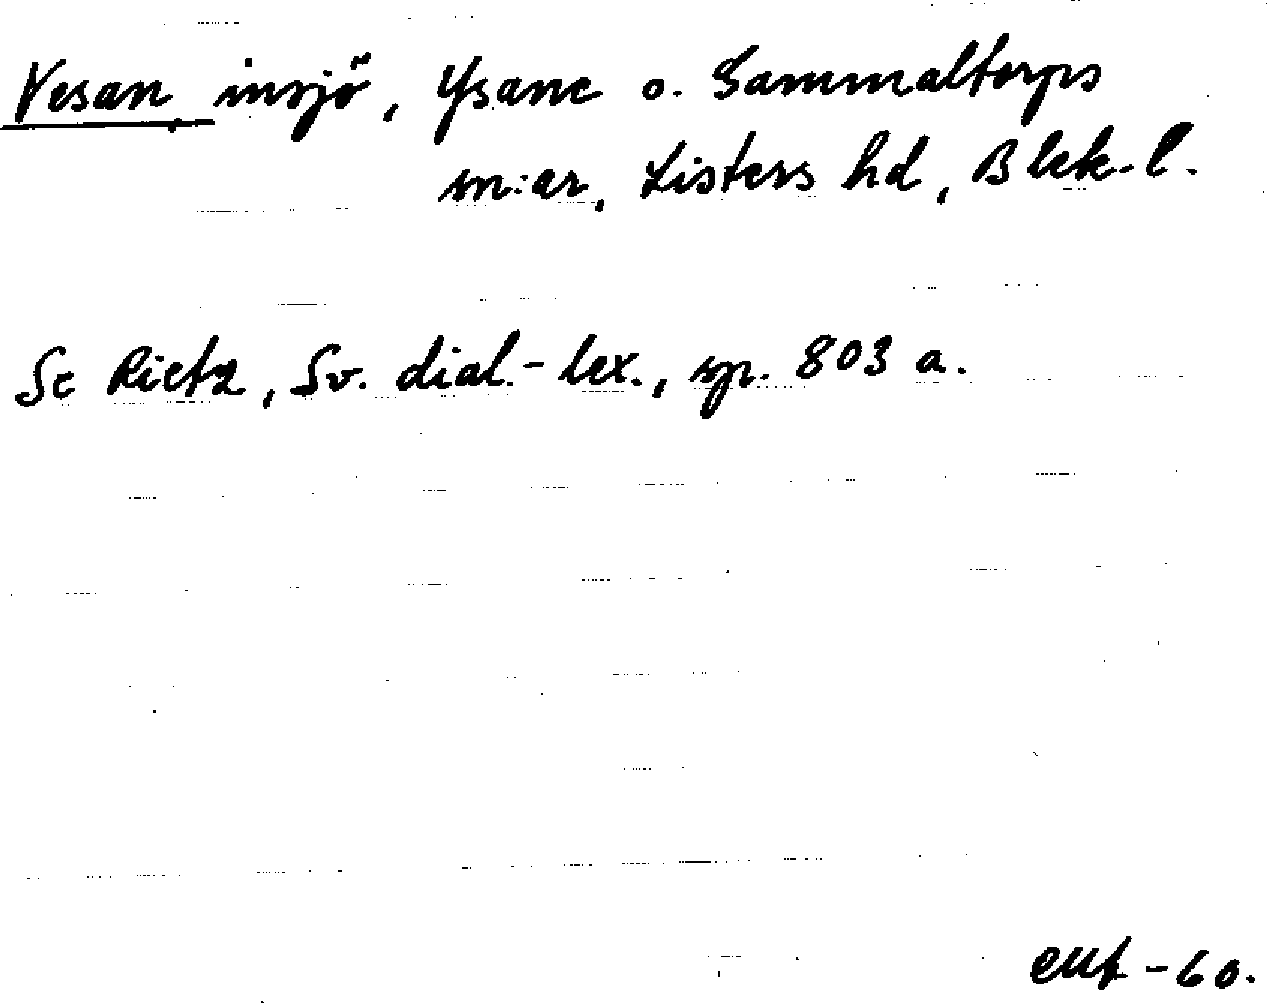 Vesan insjö, Ysane o. Gammaltorps
sn:ar, Listers hd, Blek. l.
Se Rietz, Sv. dial.-lex., sp. 803 a.
-60.